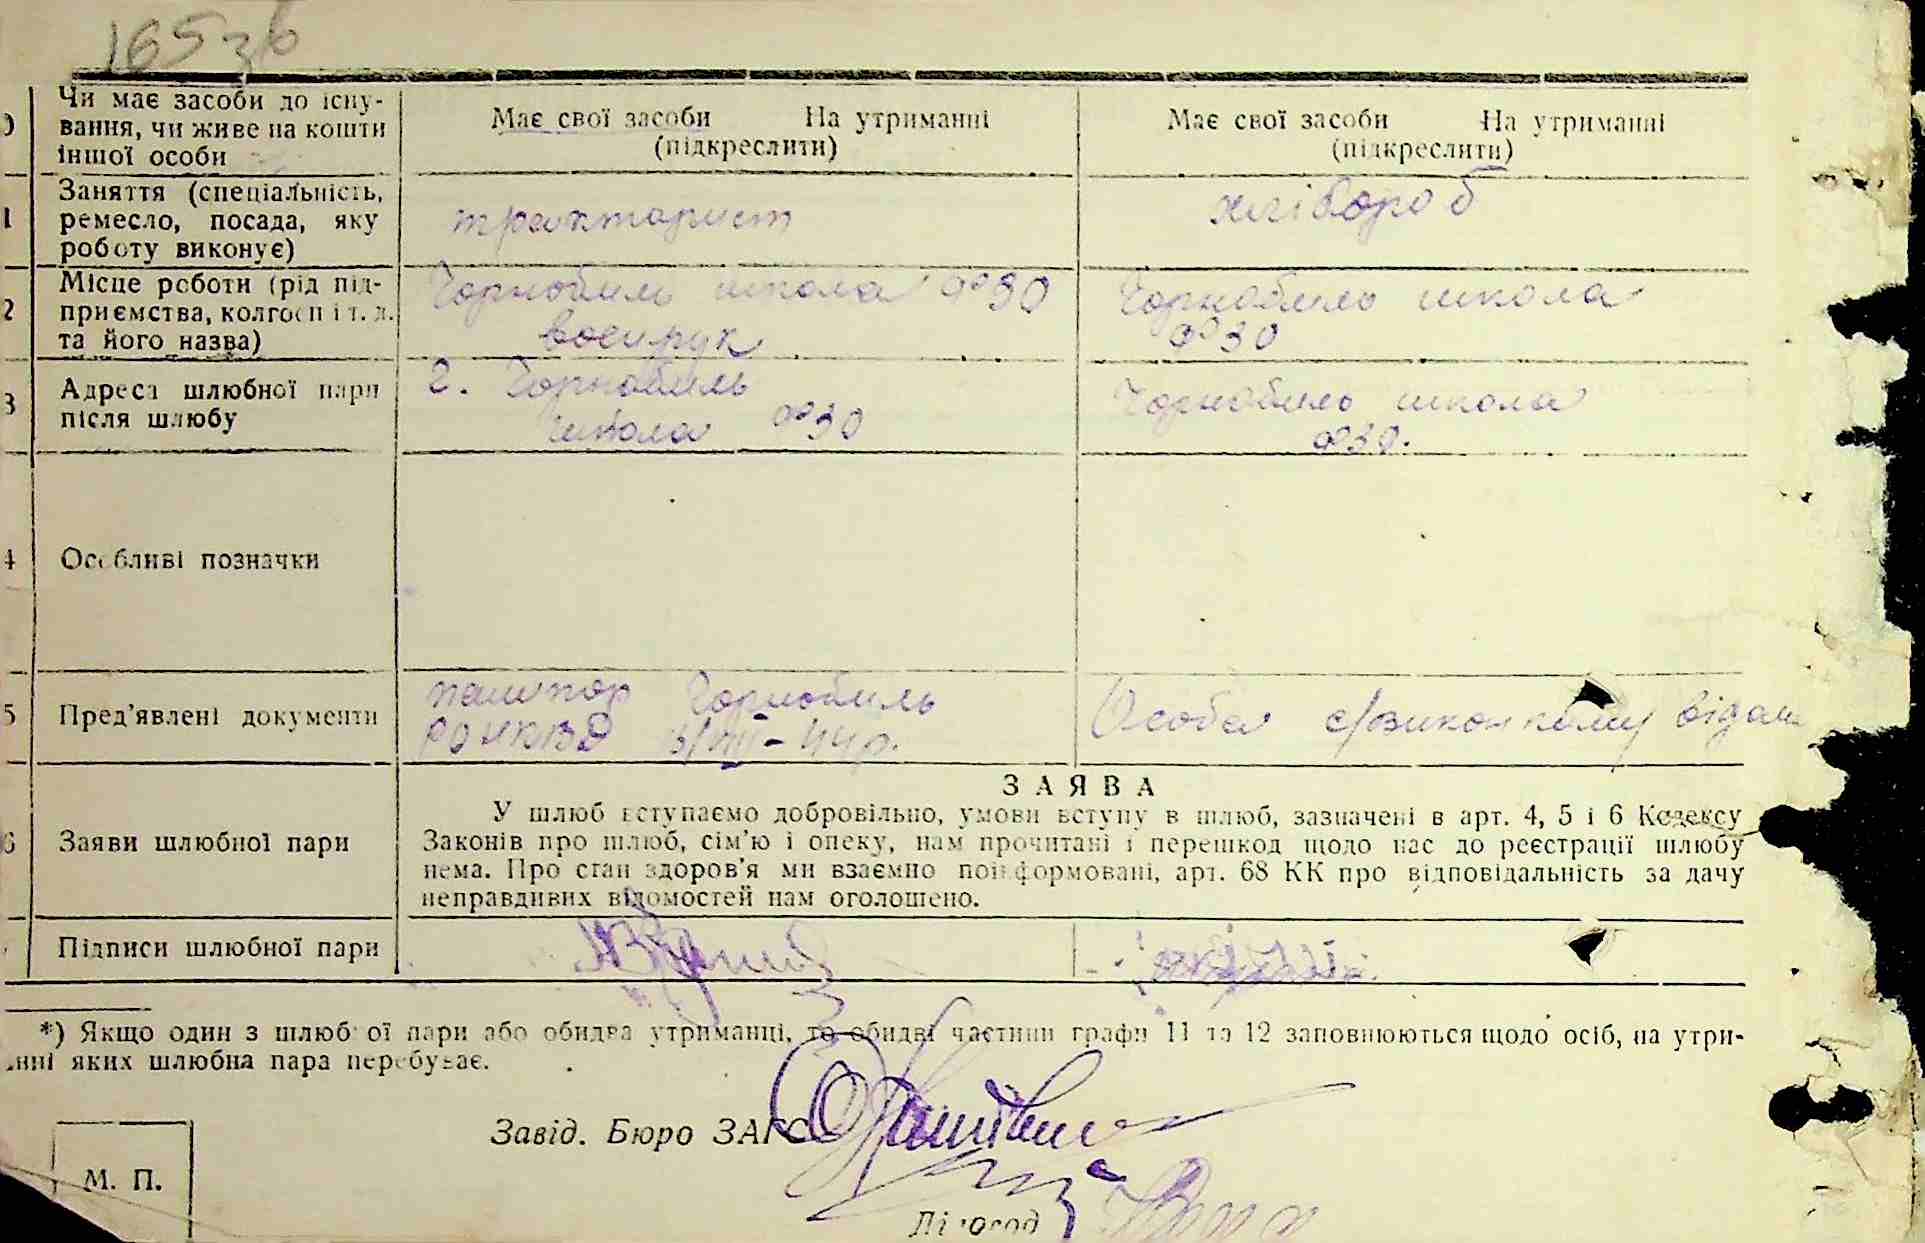 165зв
Чи має засоби до існу-
вання, чи живе на кошти
іншої особи
Має свої засоби На утриманні
(підкреслити)
Має свої засоби На утриманні
(підкреслити)
1
Заняття (спеціальність,
ремесло, посада, яку
роботу виконує)
тракторист
хлібороб
2
Місце роботи (рід під-
приємства, колгосп і т. д.
та його назва)
Чорнобиль школа №30
воєнрук
Чорнобиль школа
№30
3
Адреса шлюбної пари
після шлюбу
г. Чорнобиль
школа №30
Чорнобиль школа
№30.
4
Особливі позначки
5
Пред'явлені документи
пашпор Чорнобиль
РОНКВД 3/VIII-44р.
Особся с/виконкому відан
6
Заяви шлюбної пари
ЗАЯВА
У шлюб вступаємо добровільно, умови вступу в шлюб, зазначені в арт. 4, 5 і 6 Кодексу
Законів про шлюб, сім'ю і опеку, нам прочитані і перешкод щодо нас до реєстрації шлюбу
нема. Про стан здоров'я ми взаємно поінформовані, арт. 68 КК про відповідальність за дачу
неправдивих відомостей нам оголошено.
Підписи шлюбної пари
*) Якщо один з шлюбної пари або обидва утриманці, то обидві частини графи 11 та 12 заповнюються щодо осіб, на утри-
нні яких шлюбна пара перебуває.
Завід. Бюро ЗАГС
М. П.
Діловод